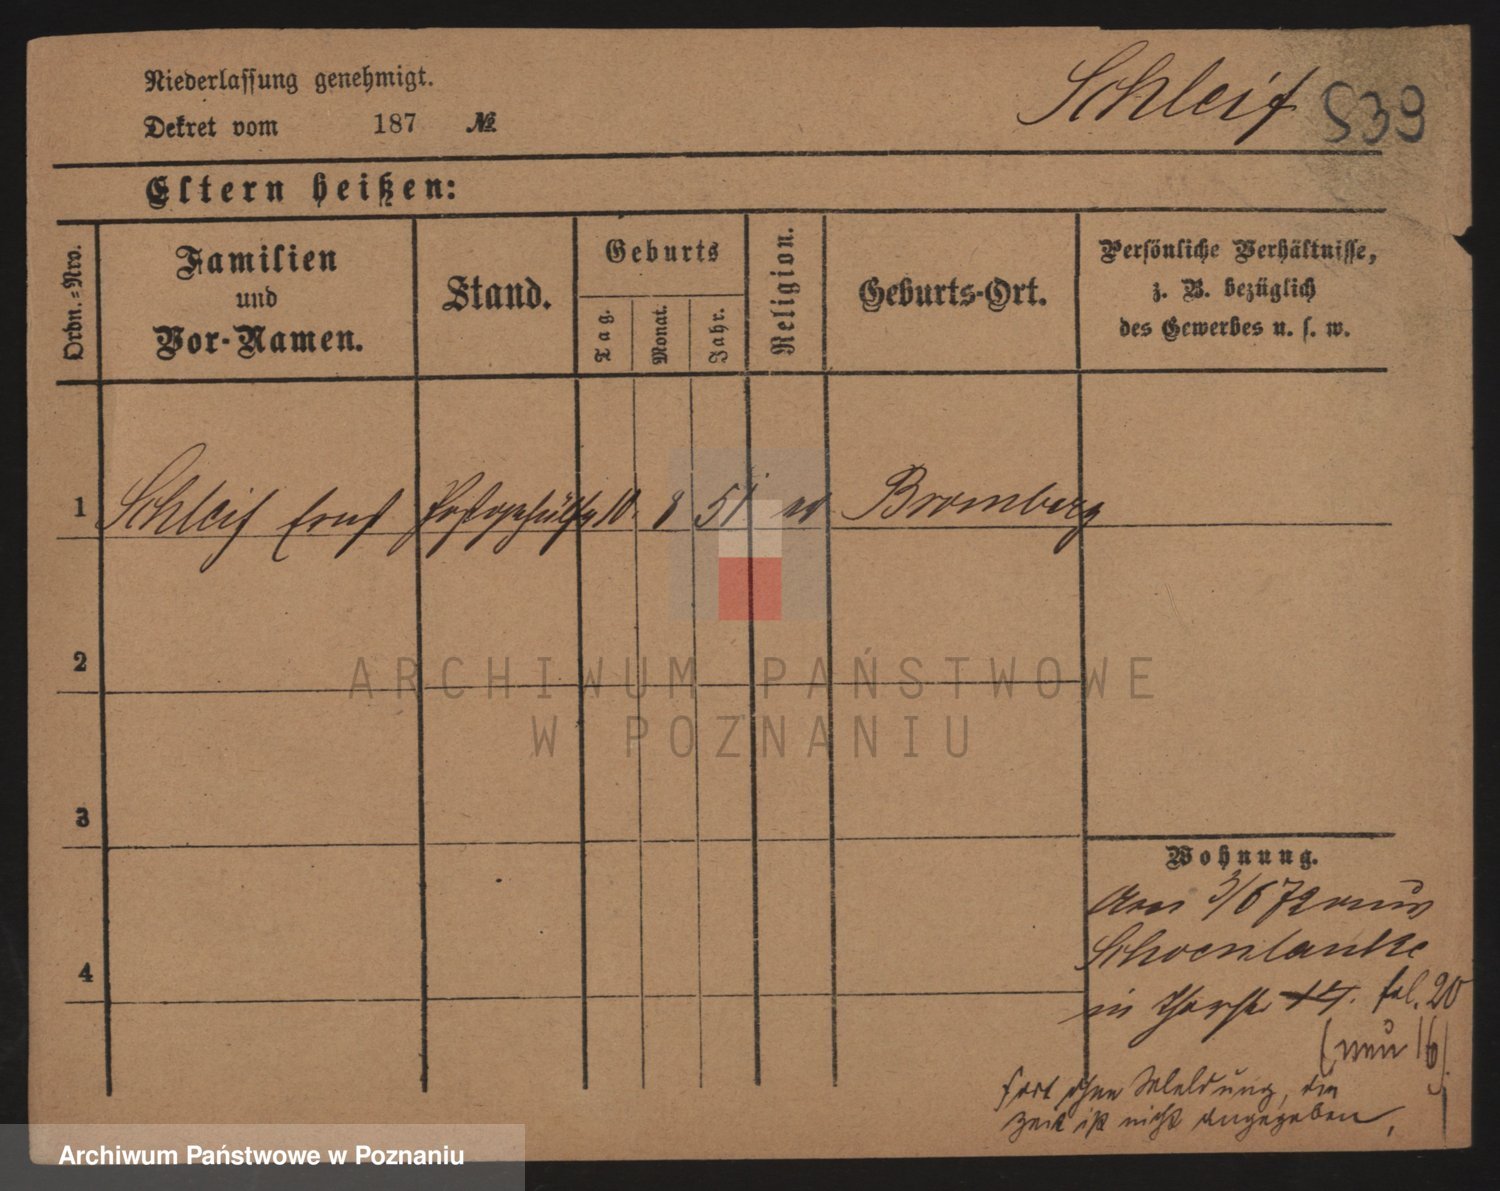 Niederlassung genehmigt.
Schleif 539
Dekret vom 187 №
Eltern heißen:
Ordn.-Nro.
Familien
und
Vor-Namen.
Stand.
Geburts
Tag.
Monat.
Jahr.
Religion.
Geburts-Ort.
Persönliche Verhältnisse,
z. B. bezüglich
des Gewerbes u. s. w.
1 Schleif Ernst Postgehülfe 10. 8 51 Bromberg
2
3
4
Wohnung.
3/6 72
Schoenlanke
in 14. fol. 20
(neu 16)
fort ohne Meldung, die
Zeit ist nicht angegeben.
ARCHIWUM PAŃSTWOWE
W POZNANIU
Archiwum Państwowe w Poznaniu